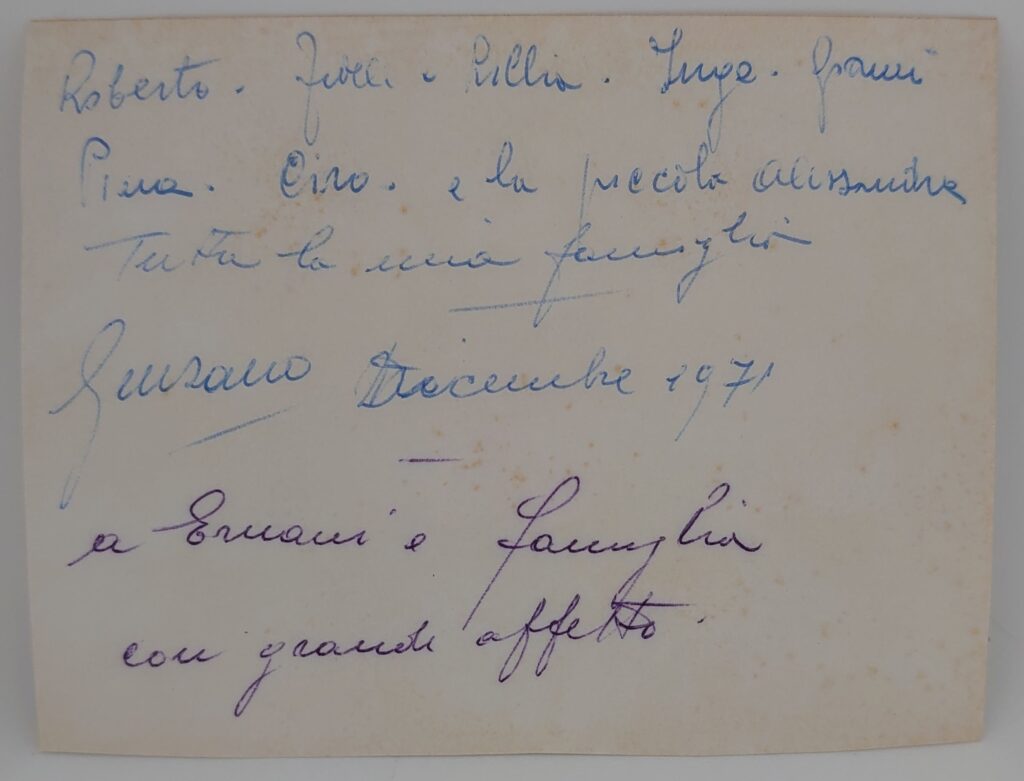 Roberto. Lillia. Inge. Gianni
Piera. Ciro. e la piccola Alessandra
Tutta la mia famiglia
Genzano Dicembre 1971
a Ernani e famiglia
con grande affetto.